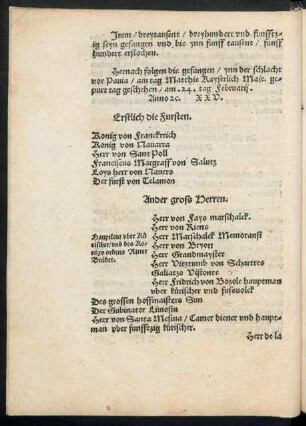 Item / dreytausent / dreyhundert vnd funfftz-
ig seyn gefangen vnd bis ynn funff tausent / funff
hundert erstochen.
Hernach folgen die gefangen / ynn der schlacht
vor Pauia / am tag Matthie Kayserlich Maie. ge-
purt tag geschehen / am .24. tag Februarij.
Anno ꝛc. XXV.
Erstlich die Fursten.
Konig von Franckreich
Konig von Nauarra
Herr von Sant Poll
Franciscus Margraff von Salutz
Loys herr von Nauers
Der furst von Telamon
Ander gross Herren.
Herr von Fays marschalck.
Herr von Riens
Hauptleut vber Kü-
rischer / vnd des Ko-
nigs ordens Ritter
Brüder.
Herr Marschalck Memoranst
Herr von Bryon
Herr Grandmayster
Herr Vitztumb von Schartres
Galiatzo Visconte
Herr Fridrich von Bozole hauptman
vber kürischer vnd fusvolck
Des grossen hoffmaisters Sun
Der Gubinator Limosin
Herr von Santa Mesma / Camer diener vnd haupt-
man vber funfftzig kürischer.
Herr de la